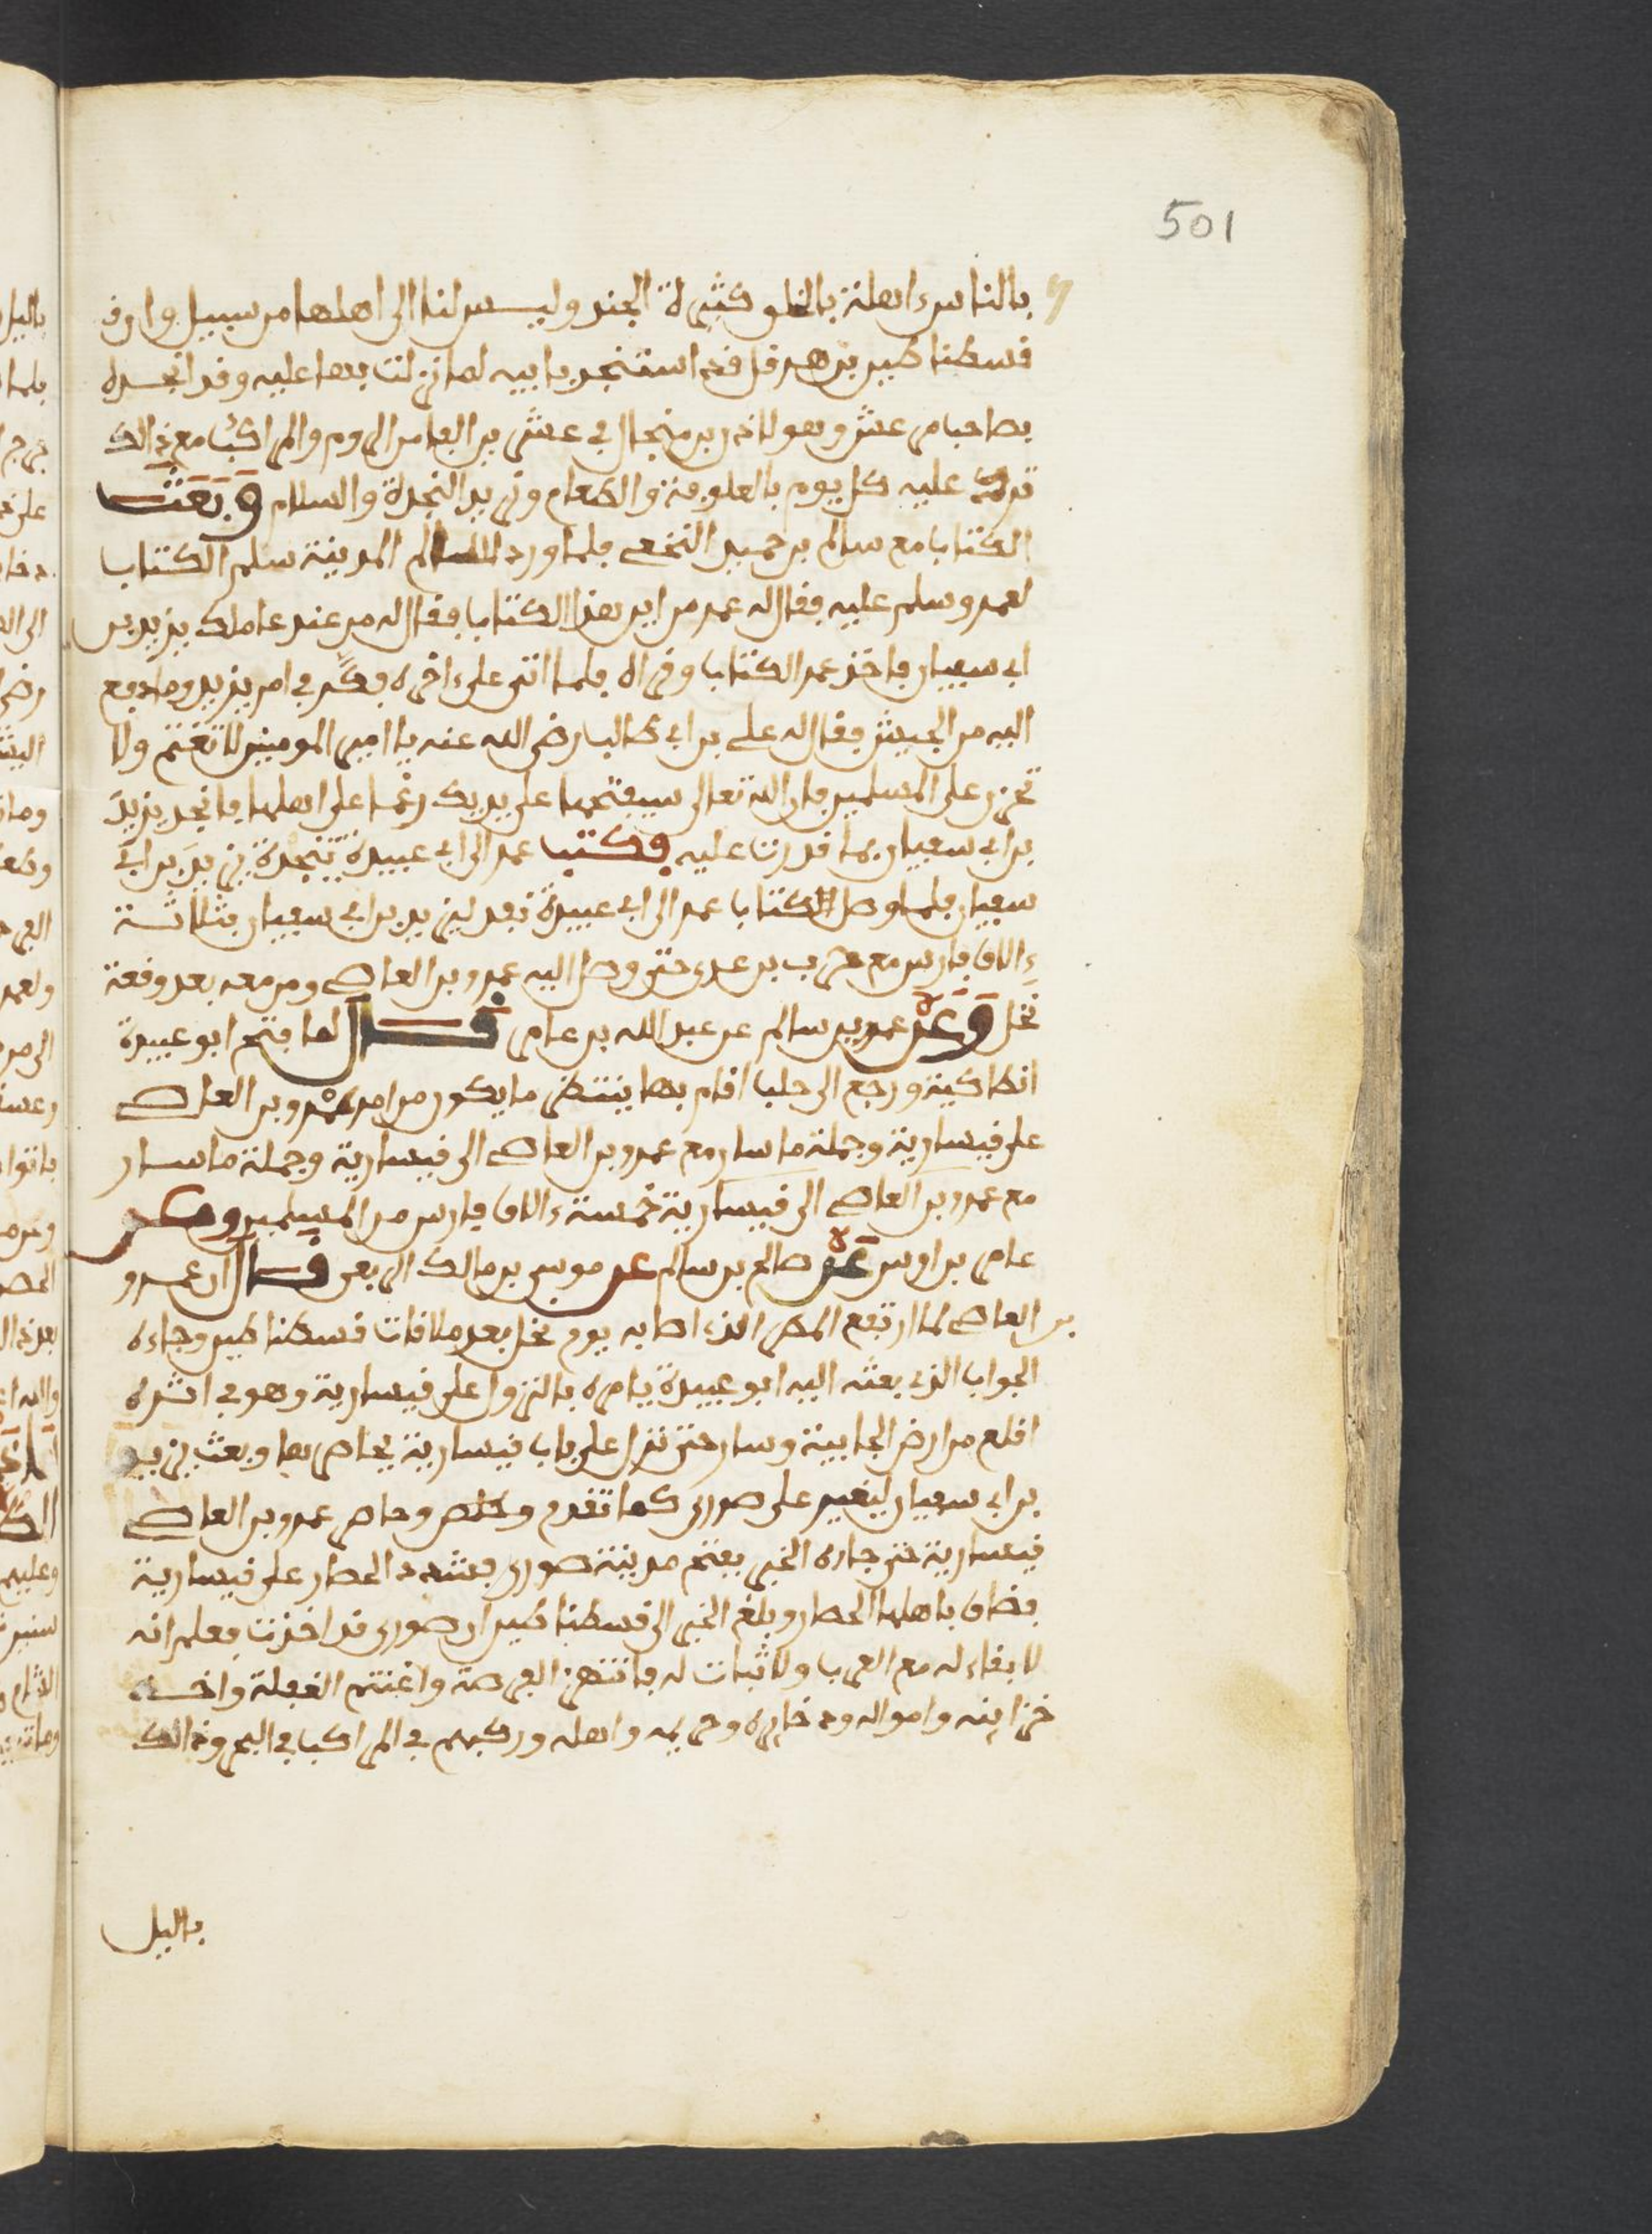 501
بالناس اهلة بالخلو كثيرة الجند وليس لنا الى اهلها من سبيل وان
قسطنطين بن هرقل قد استنجد بابيه لما نزلت بها عليه وقد انجده
بصاحب مرعش وهو لاذر بن منجال في عشرين الفا من الروم والمراكب مع ذالك
ترد عليه كل يوم بالعلوفة والطعام ونريد النجدة والسلام وبعث
الكتاب مع سالم بن حميد النخعي فلما ورد سالم المدينة سلم الكتاب
لعمر وسلم عليه فقال له عمر من اين هذا الكتاب فقال له من عند عاملك يزيد بن
ابي سفيان فاخذ عمر الكتاب وقراه فلما اتى على ءاخره فكر في امر يزيد وما دفع
اليه من الجيش فقال له علي بن ابي طالب رضي الله عنه يا امير المومنين لا تغتم ولا
تحزن على المسلمين فان الله تعالى سيفتحها على يديك رغما على اهلها فانجد يزيد
بن ابي سفيان بما قدرت عليه فكتب عمر الى ابي عبيدة بنجدة يزيد بن ابي
سفيان فلما وصل الكتاب عمر الى ابي عبيدة نفد ليزيد بن ابي سفيان بثلاثة
ءالاف فارس مع حرب بن عدي حتى وصل اليه عمرو بن العاص ومن معه بعد وقعة
نخل وعن عمر بن سالم عن عبد الله بن عامر قال لما فتح ابو عبيدة
انطاكية ورجع الى حلب اقام بها ينتظر ما يكون من امر عمرو بن العاص
على قيسارية وجملة ما سار مع عمرو بن العاص الى قيسارية وجملة ما سار
مع عمرو بن العاص الى قيسارية خمسة ءالاف فارس من المسلمين
عامر بن اوس عن صالح بن سالم عن موسى بن مالك الربعي قال ان عمرو
بن العاص لما ارتفع المطر الذي اصابه يوم نخل بعد ملاقات قسطنطين وجاءه
الجواب الذي بعثه اليه ابو عبيدة يامره بالنزول على قيسارية وهو في اثره
اقلع من ارض الجابية وسار حتى نزل على باب قيسارية يحاصرها وبعث يزيد
بن ابي سفيان ليغير على صور كما تقدم وحاصر عمرو بن العاص
قيسارية حتى جاءه الخبر بفتح مدينة صور فشدد الحصار على قيسارية
فضاق باهلها الحصار وبلغ الخبر الى قسطنطين ان صور قد اخذت فعلم انه
لا بقاء له مع العرب ولا ثبات له فانتهز الفرصة واغتنم الغفلة واخذ
خزاينه وامواله وذخايره وحريمه واهله وركبهم في المراكب في البحر وذالك
باليل